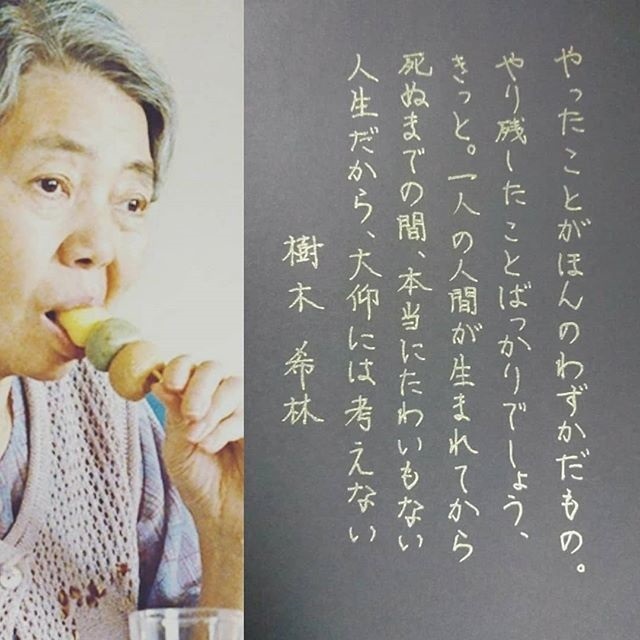 やったことがほんのわずかだもの。
やり残したことばっかりでしょう、
きっと。一人の人間が生まれてから
死ぬまでの間、本当にたわいもない
人生だから、大仰には考えない
樹木希林